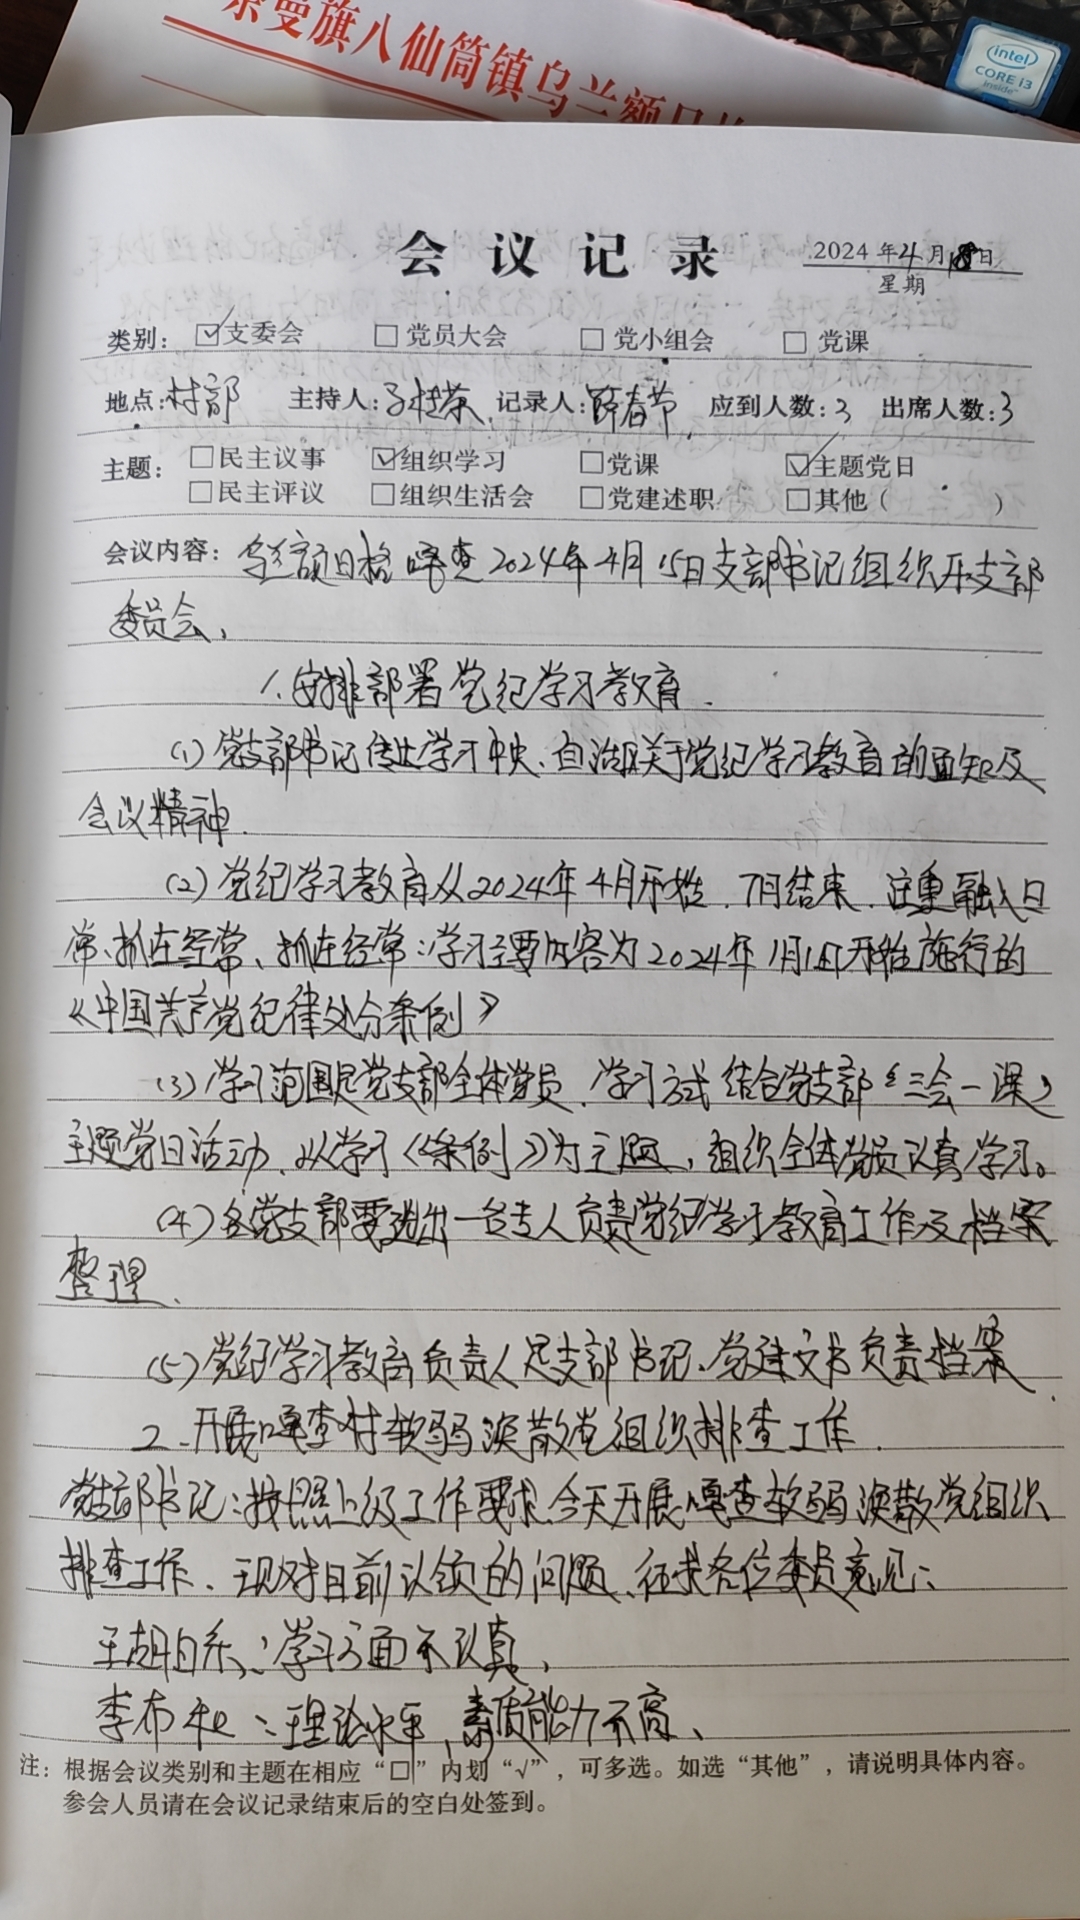 奈曼旗八仙筒镇乌兰额日格
intel
CORE i3
inside
会议记录
2024年4月18日
星期
类别: ☑支委会 □党员大会 □党小组会 □党课
地点:村部 主持人: 记录人: 应到人数:3 出席人数:3
主题: □民主议事 ☑组织学习 □党课 ☑主题党日
□民主评议 □组织生活会 □党建述职 □其他( )
会议内容: 乌兰额日格嘎查2024年4月15日支部书记组织开支部
委员会,
1.安排部署党纪学习教育.
(1)党支部书记传达学习中央、自治区关于党纪学习教育的通知及
会议精神.
(2)党纪学习教育从2024年4月开始.7月结束.注重融入日
常、抓在经常、抓在经常:学习主要内容为2024年1月1日开始施行的
《中国共产党纪律处分条例》
(3)学习范围是党支部全体党员.学习方式结合党支部《三会一课》
主题党日活动、以学习《条例》为主题,组织全体党员认真学习。
(4)各党支部要选出一名专人负责党纪学习教育工作及档案
整理、
(5)党纪学习教育负责人是支部书记、党建文书负责档案.
2、开展嘎查村软弱涣散党组织排查工作.
党支部书记:按照上级工作要求今天开展嘎查软弱涣散党组织
排查工作.现对目前认领的问题、征求各位委员意见:
王胡日乐:学习方面不认真,
李布和:理论水平,素质能力不高、
注: 根据会议类别和主题在相应“□”内划“√”,可多选。如选“其他”,请说明具体内容。
参会人员请在会议记录结束后的空白处签到。